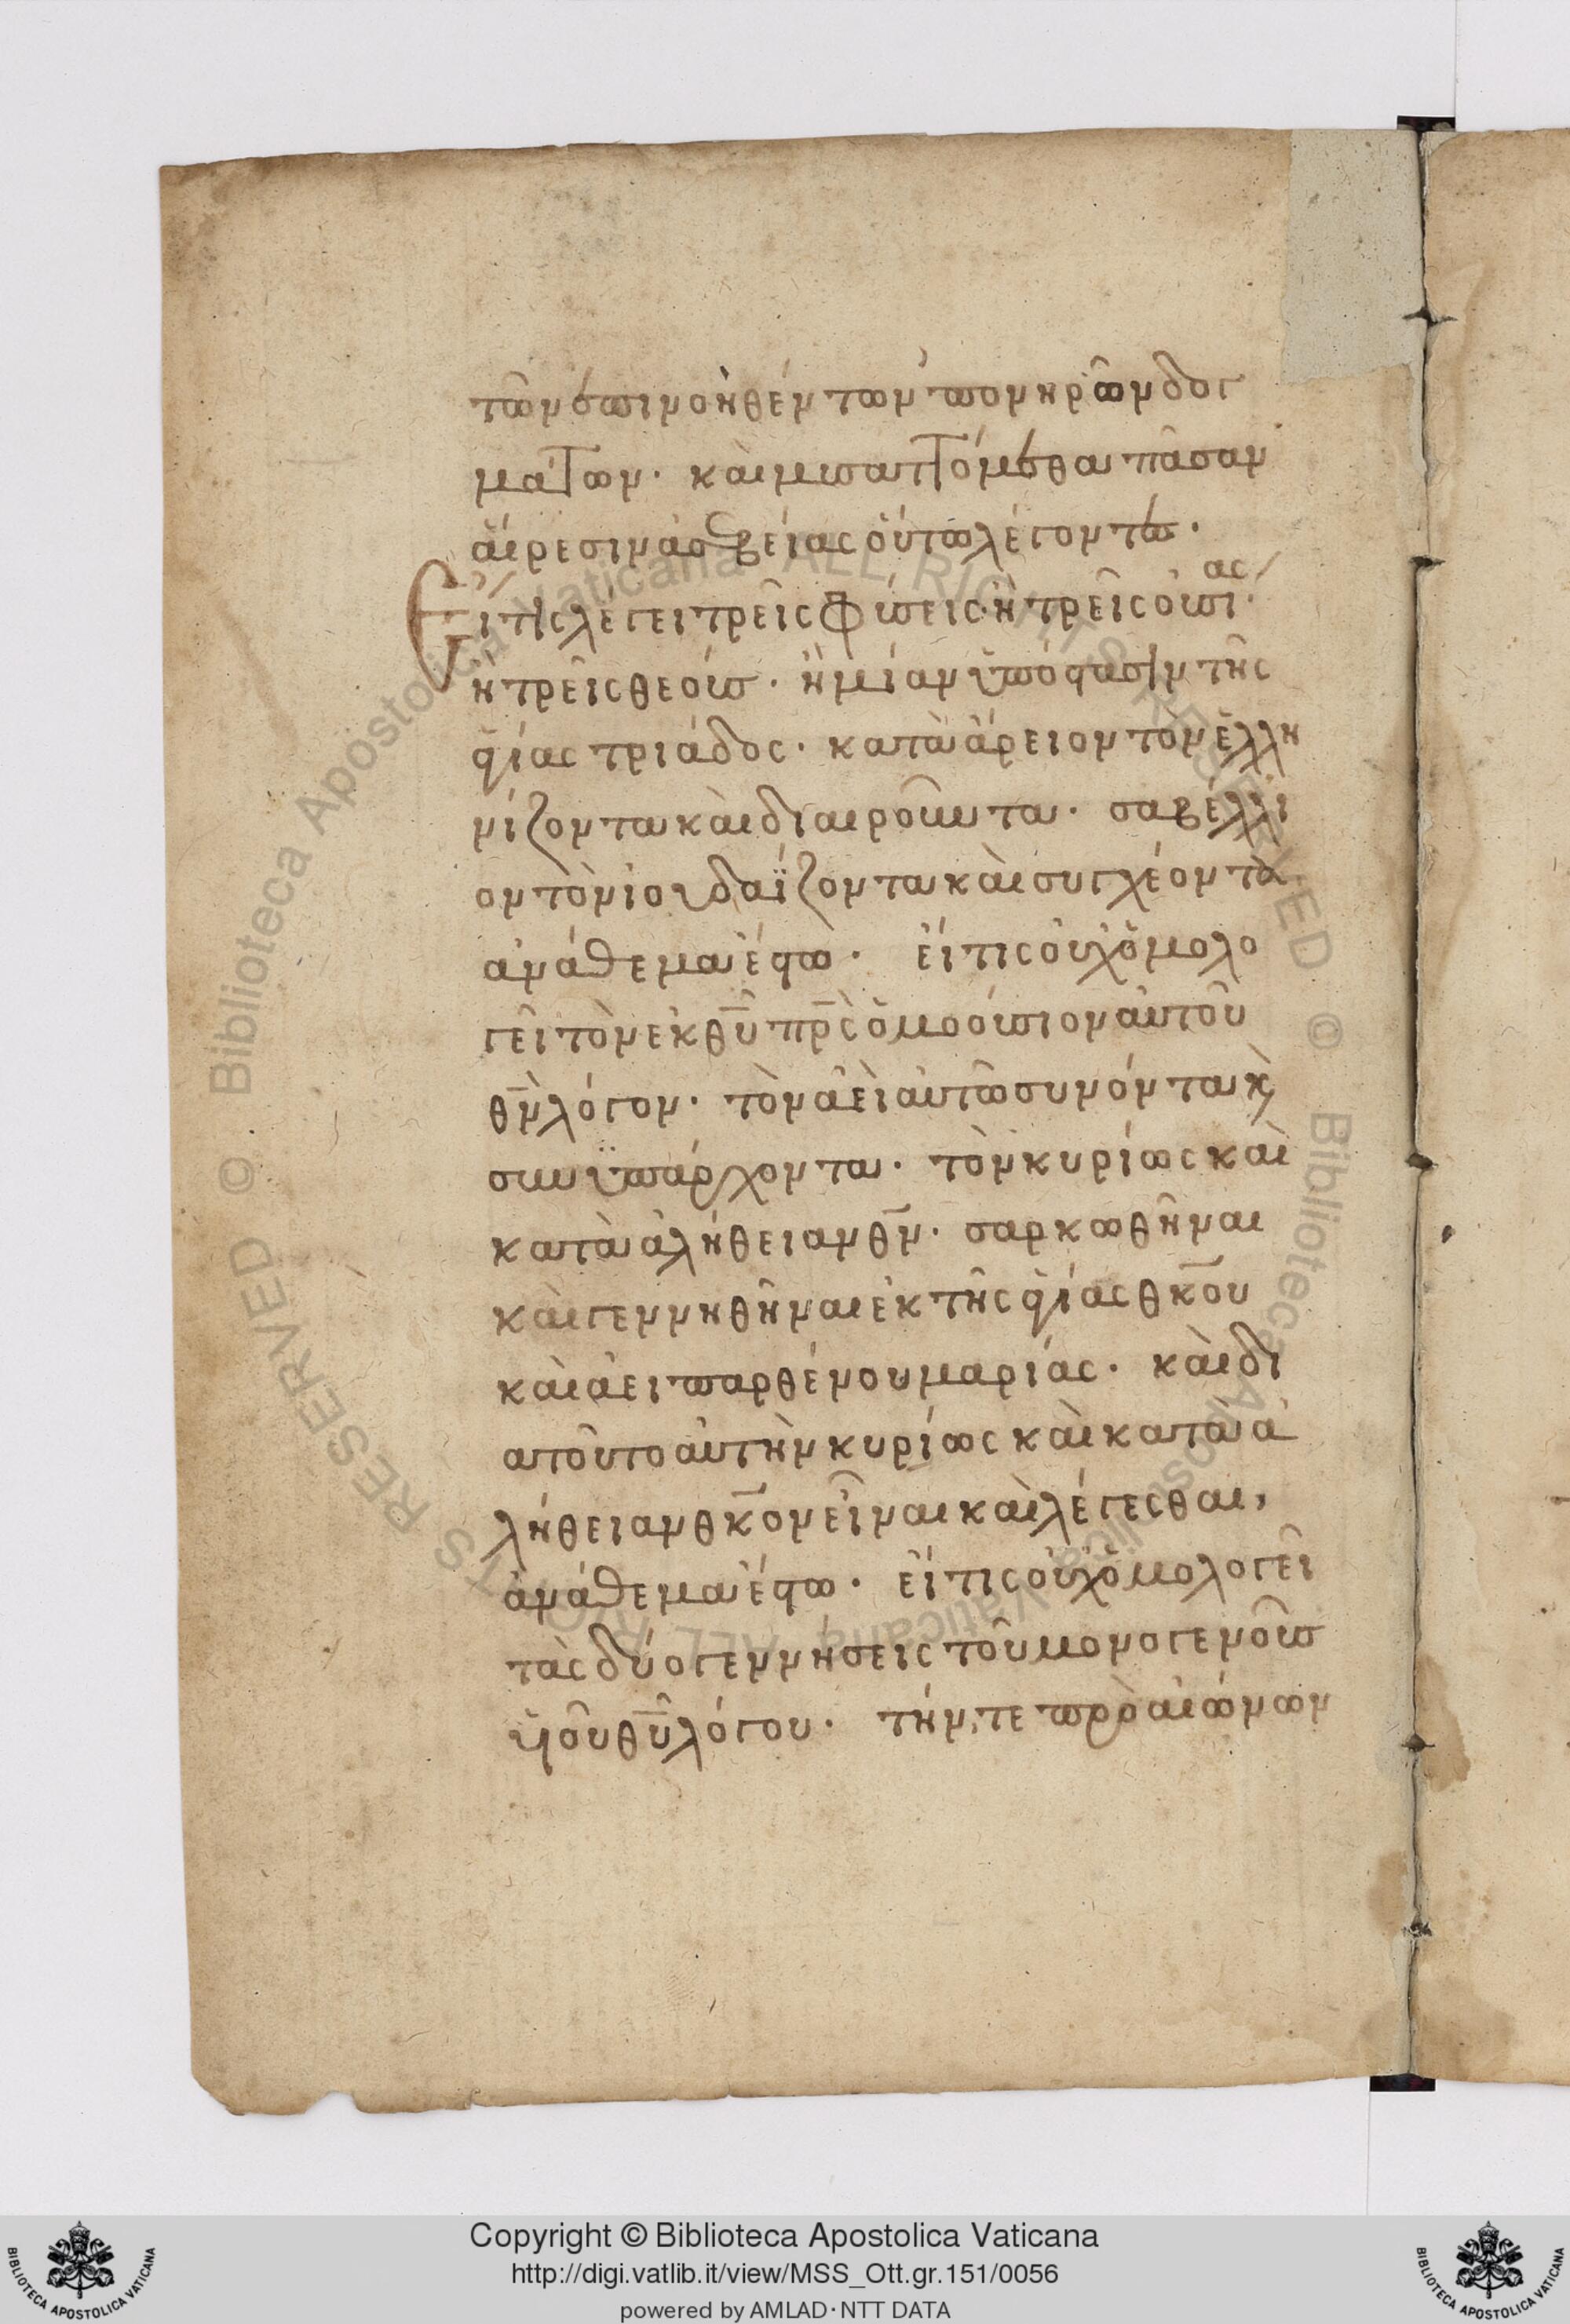 τῶν ἐπινοηθέντων πονηρῶν δογ
μάτων· καὶ μυσαττόμεθα πᾶσαν
αἵρεσιν ἀσεβείας οὕτω λέγοντες·
Εἴ τις λέγει τρεῖς φύσεις· ἢ τρεῖς οὐσίας·
ἢ τρεῖς θεούς· ἢ μίαν ὑπόστασιν τῆς
ἁγίας τριάδος· κατὰ ἄρειον τὸν ἑλλη
νίζοντα καὶ διαιροῦντα· σαβέλλι
ον τὸν ἰουδαΐζοντα καὶ συγχέοντα
ἀνάθεμα ἔστω· εἴ τις οὐχ ὁμολο
γεῖ τὸν ἐκ θῡ πρ̅ς ὁμοούσιον αὐτοῦ
θν̅ λόγον· τὸν ἀεὶ αὐτῶ συνόντα κ̀
συνϋπάρχοντα· τὸν κυρίως καὶ
κατὰ ἀλήθειαν θν̅· σαρκωθῆναι
καὶ γεννηθῆναι ἐκ τῆς ἁγίας θκ̅ου
καὶ ἀειπαρθένου μαρίας· καὶ δι
ατοῦτο αὐτὴν κυρίως καὶ κατὰ ἀ
λήθειαν θκ̅ον εἶναι καὶ λέγεσθαι,
ἀνάθεμα ἔστω· εἴ τις οὐχ ὁμολογεῖ
τὰς δύο γεννήσεις τοῦ μονογενοῦς
ὑιοῦ θῡ λόγου· τήν, τε πρὸ αἰώνων
Copyright © Biblioteca Apostolica Vaticana
http://digi.vatlib.it/view/MSS_Ott.gr.151/0056
powered by AMLAD·NTT DATA
BIBLIOTECA APOSTOLICA VATICANA
BIBLIOTECA APOSTOLICA VATICANA